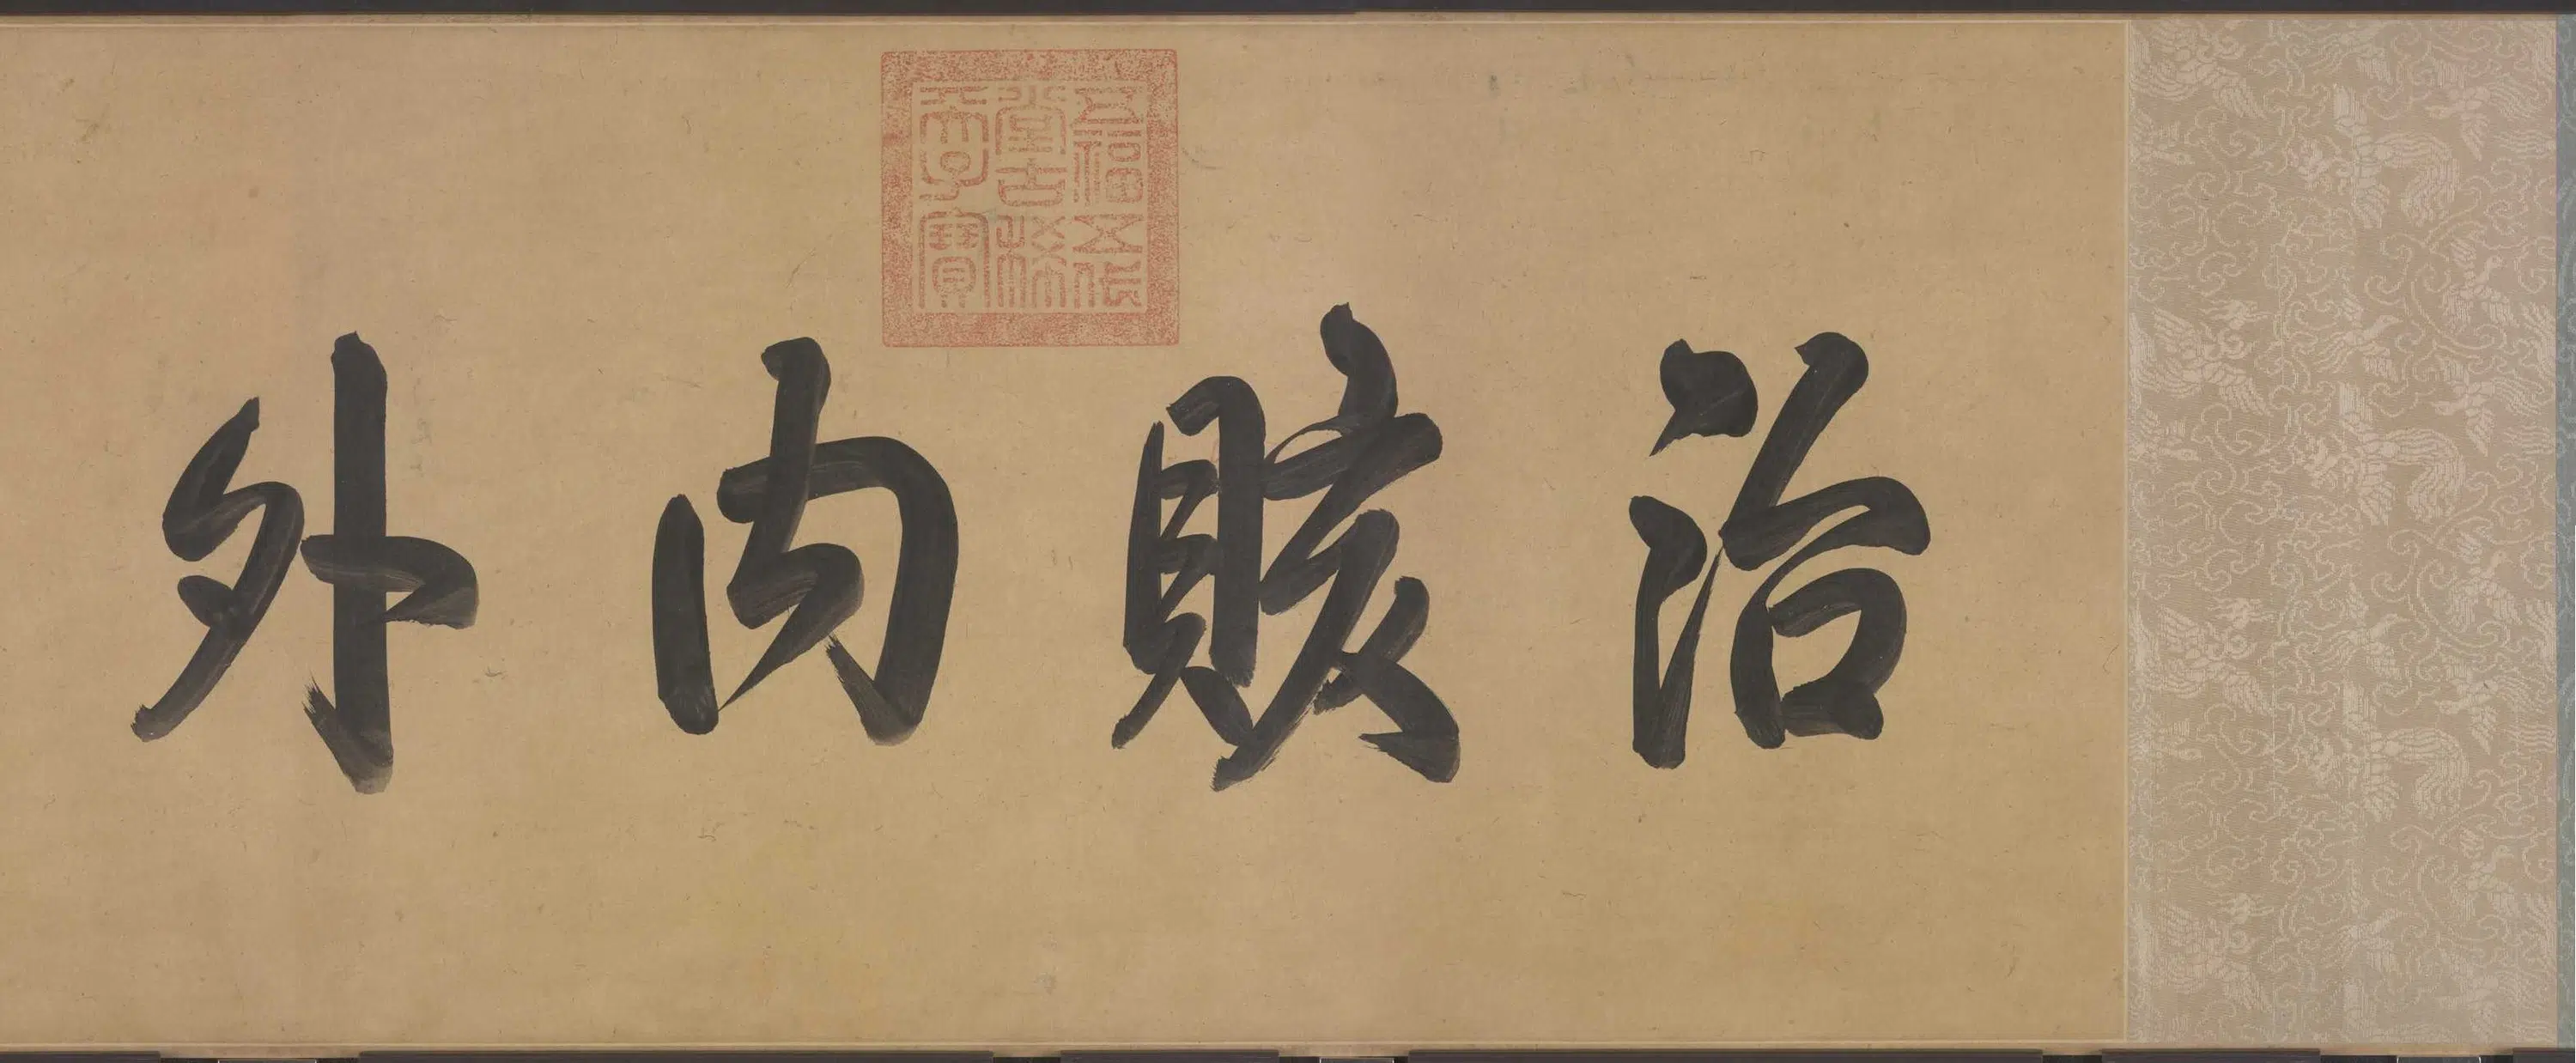 治賅內外
五福五代
堂古稀
天子寶